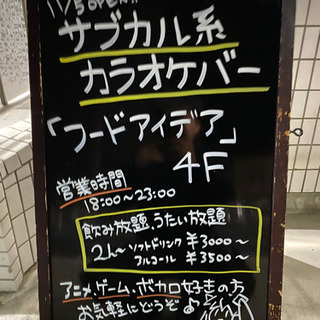 11/5 OPEN!!
サブカル系
カラオケバー
「フードアイデア」
4F
営業時間
18:00〜23:00
飲み放題、うたい放題
2h〜 ソフトドリンク ¥3000〜
アルコール ¥3500〜
アニメ、ゲーム、ボカロ好きの方
お気軽にどうぞ♪